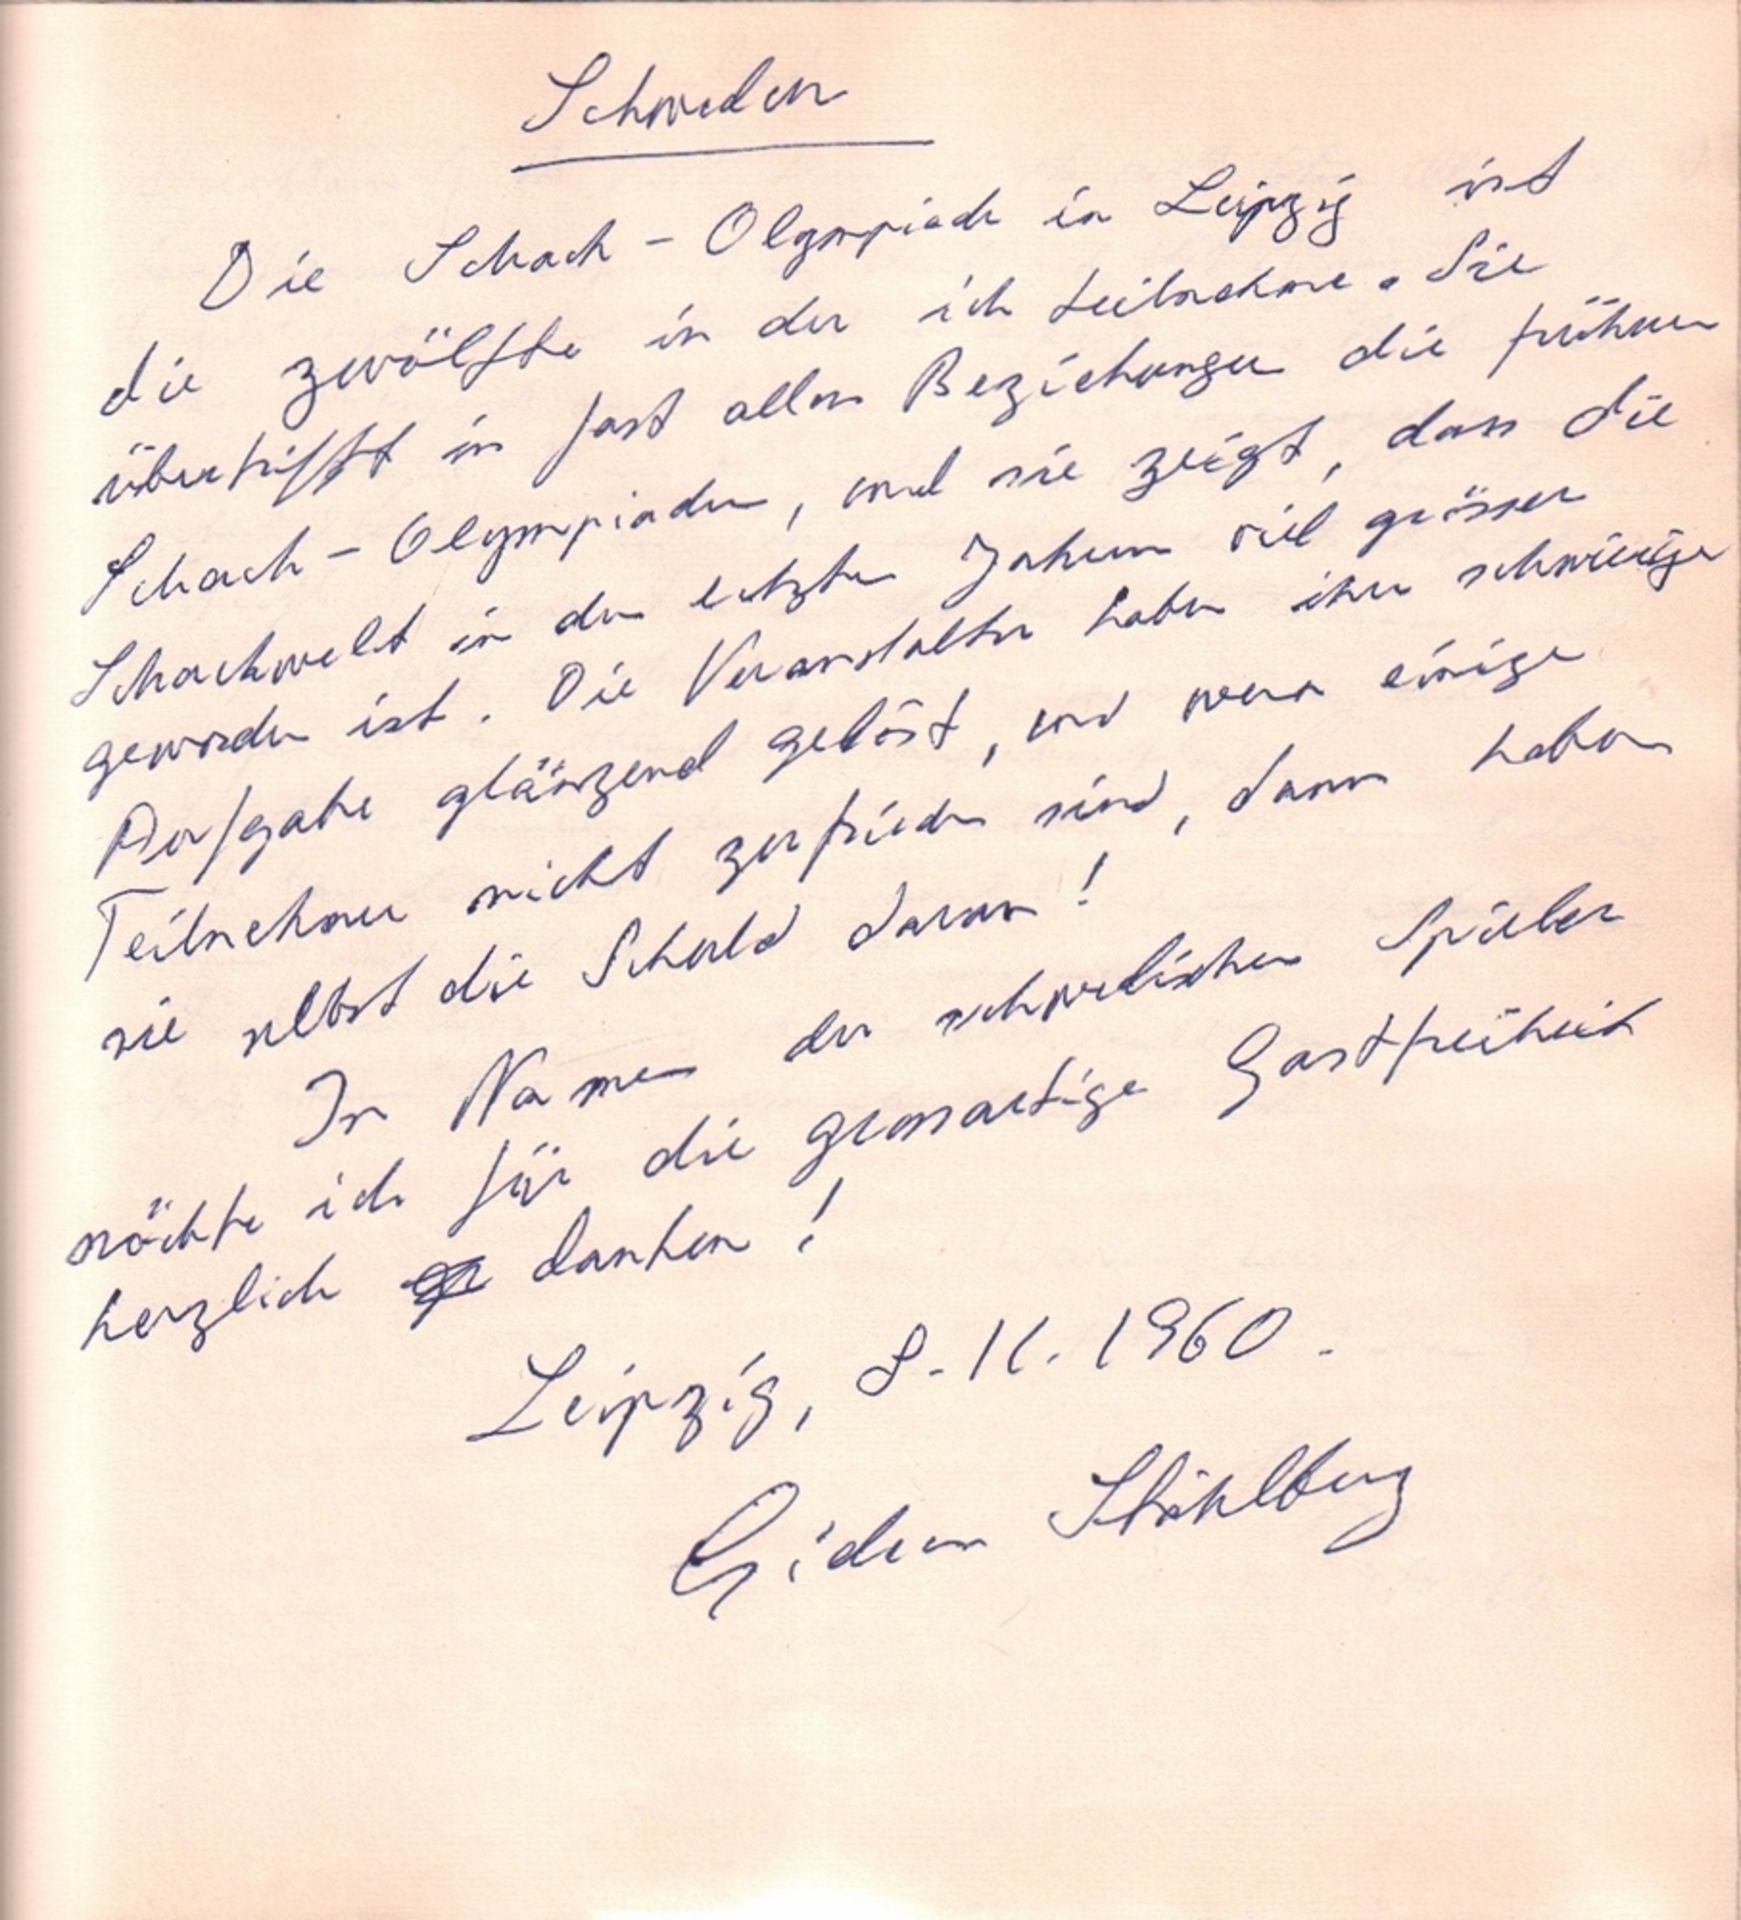 Schweden
Die Schach - Olympiade in Leipzig ist
die zwölfte in der ich teilnehme. Sie
übertrifft in fast allen Beziehungen die frühern
Schach - Olympiaden, und sie zeigt, dass die
Schachwelt in den letzten Jahren viel grösser
geworden ist. Die Veranstalter haben ihre schwierige
Aufgabe glänzend gelöst, und wenn einige
Teilnehmer nicht zufrieden sind, dann haben
sie selbst die Schuld daran!
In Namen der schwedischen Spieler
möchte ich für die grossartige Gastfreiheit
herzlich danken!
Leipzig, 8.11.1960.
Gideon Ståhlberg